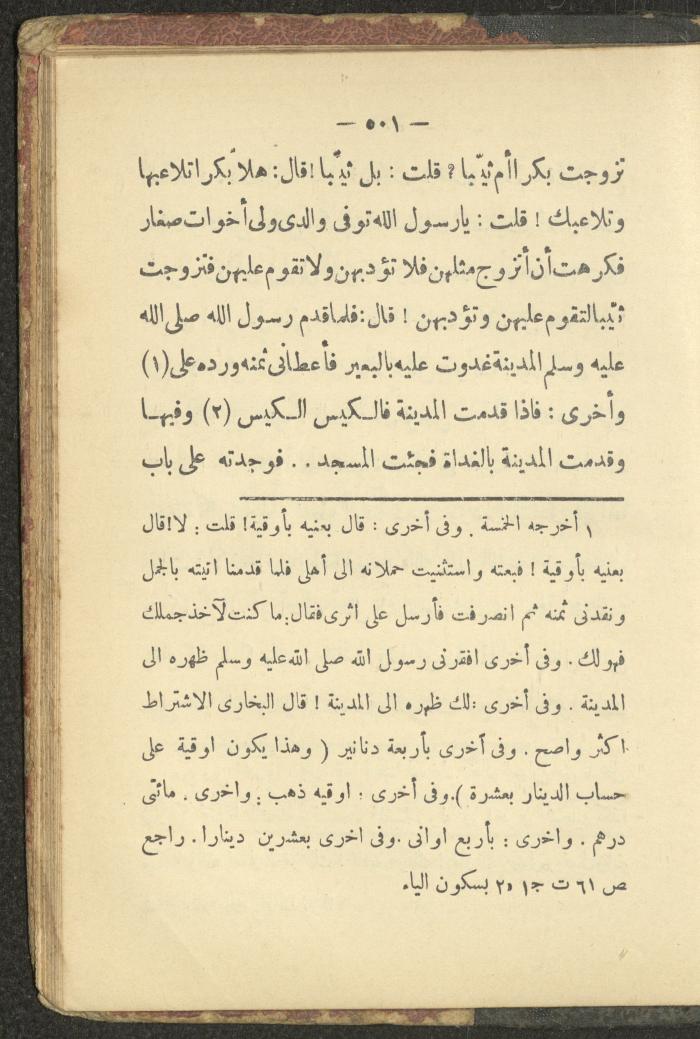 — ٥٠١ —
تزوجت بكرا أم ثيّبا ? قلت : بل ثيّبا ! قال : هلاّ بكرا تلاعبها
وتلاعبك ! قلت : يارسول الله توفى والدى ولى أخوات صغار
فكرهت أن أتزوج مثلهن فلا تؤدبهن ولا تقوم عليهن فتزوجت
ثيّبا لتقوم عليهن وتؤدبهن ! قال : فلما قدم رسول الله صلى الله
عليه وسلم المدينة غدوت عليه بالبعير فأعطانى ثمنه ورده على (١)
وأخرى : فاذا قدمت المدينة فالكيس الكيس (٢) وفيها
وقدمت المدينة بالغداة فجئت المسجد . . فوجدته على باب
١ أخرجه الخمسة . وفى أخرى : قال بعنيه بأوقية ! قلت : لا ! قال
بعنيه بأوقية ! فبعته واستثنيت حملانه الى أهلى فلما قدمنا اتيته بالجمل
ونقدنى ثمنه ثم انصرفت فأرسل على اثرى فقال : ما كنت لآخذ جملك
فهو لك . وفى أخرى افقرنى رسول الله صلى الله عليه وسلم ظهره الى
المدينة . وفى أخرى : لك ظهره الى المدينة ! قال البخارى الاشتراط
اكثر واصح . وفى أخرى بأربعة دنانير ( وهذا يكون اوقية على
حساب الدينار بعشرة ) . وفى أخرى : اوقيه ذهب : واخرى . مائتى
درهم . واخرى : بأربع اوانى . وفى اخرى بعشرين دينارا . راجع
ص ٦١ ت ج ١ و ٢ بسكون الياء